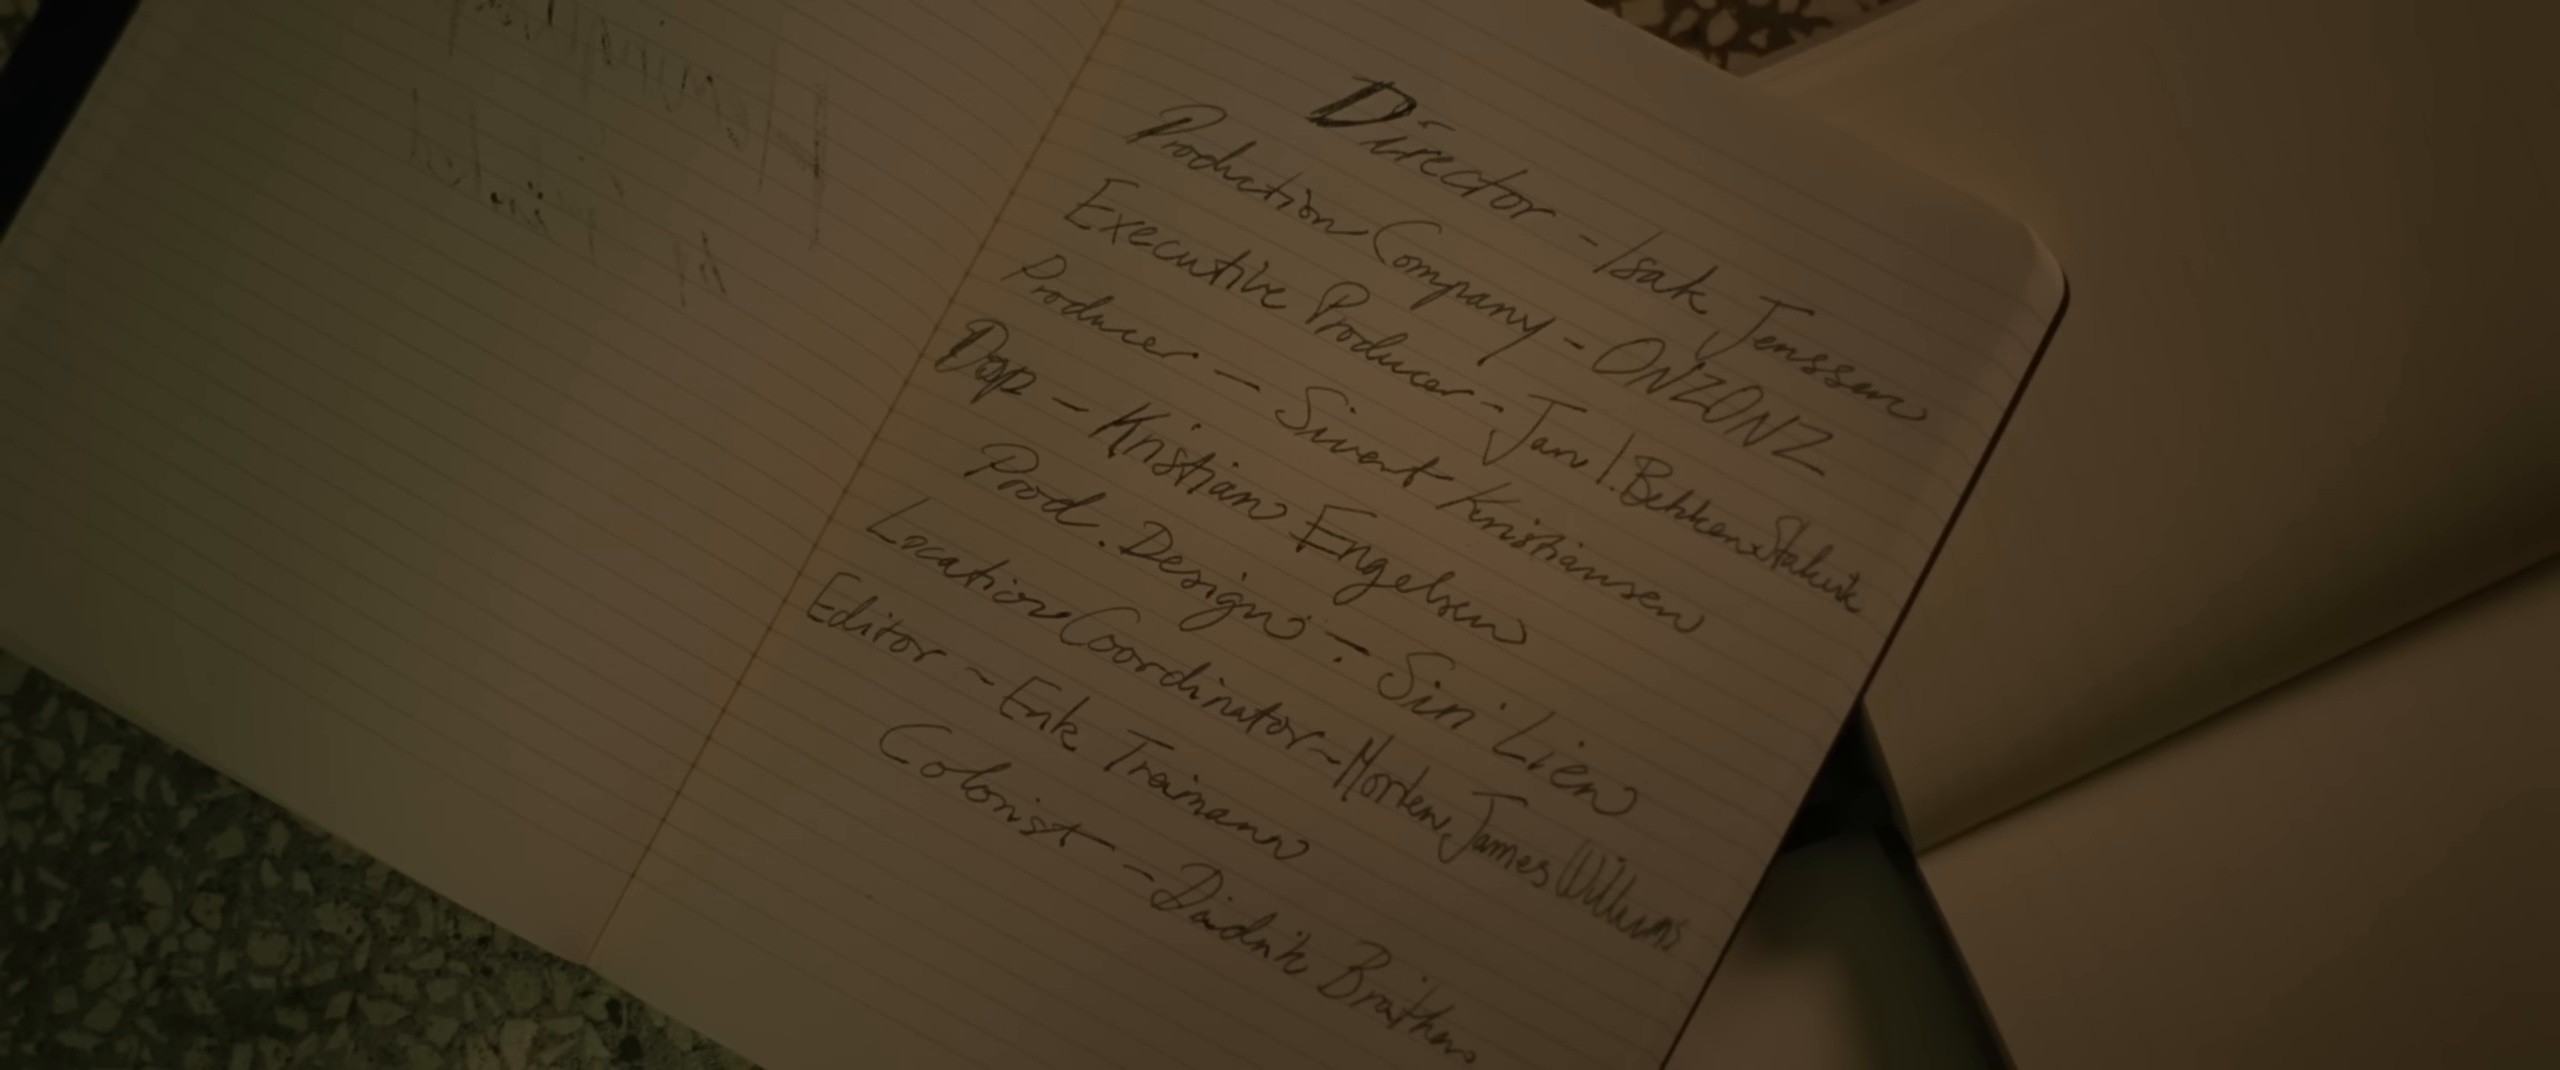 Director - Isak Jenssen
Production Company - ONZONZ
Executive Producer - Jan I. Behken
Producer - Sivert Kristiansen
Dop - Kristian Engelsen
Prod. Design - Siri Lien
Location Coordinator - Morten James Williams
Editor - Erik Treimann
Colorist - Didrik Bråthen